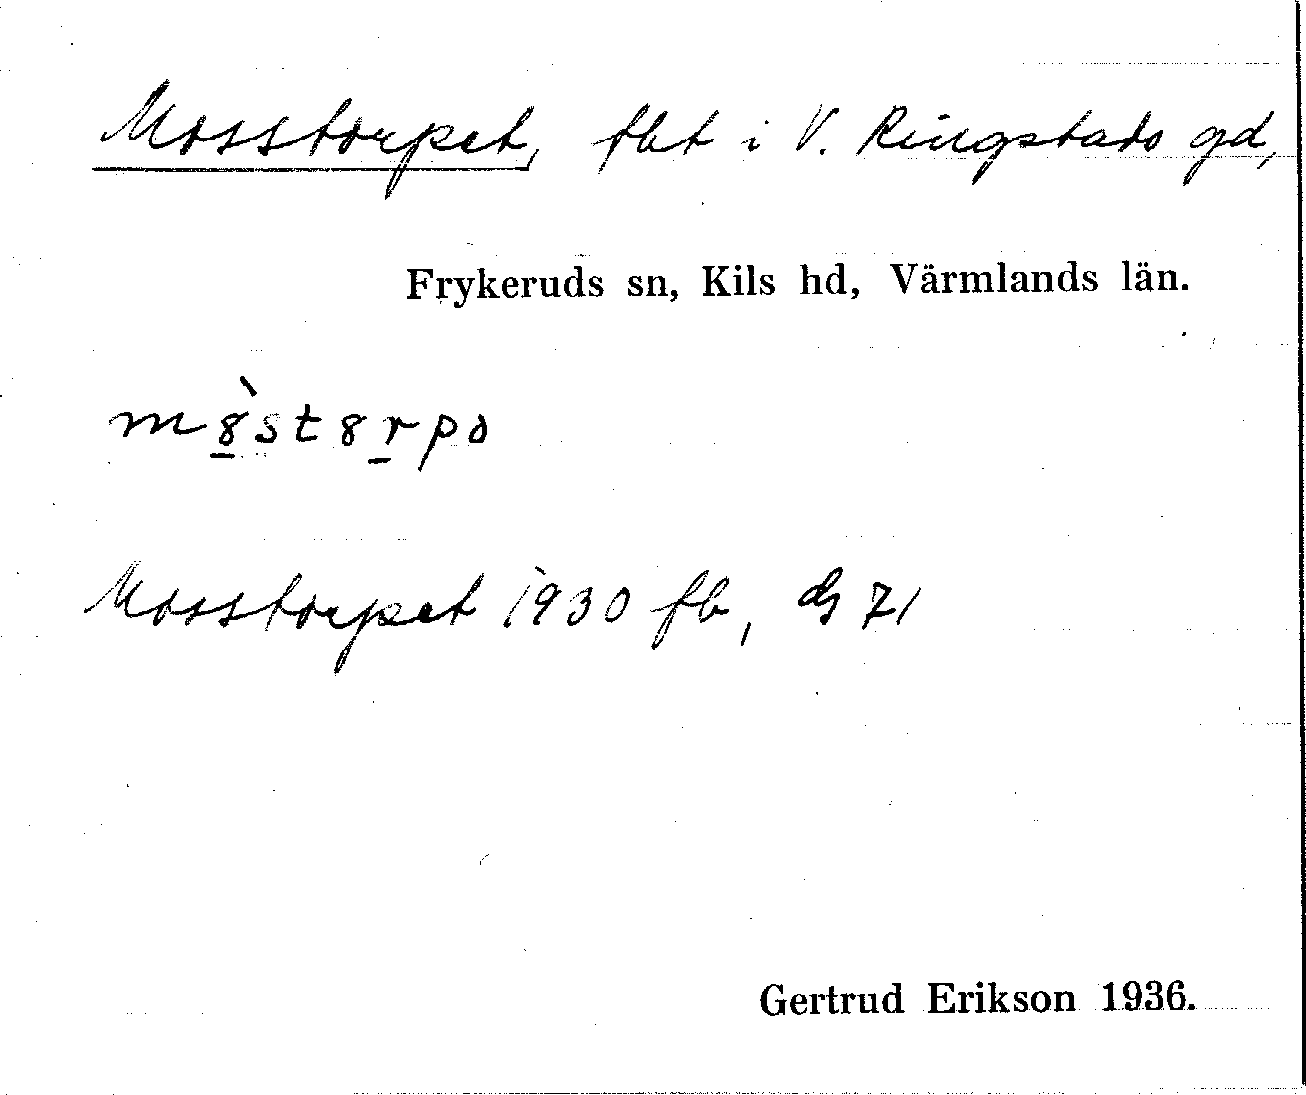 Mosstorpet, fbt i V. Ringstads gd,
Frykeruds sn, Kils hd, Värmlands län.
Mosstorpet 1930 fb, 71
Gertrud Erikson 1936.